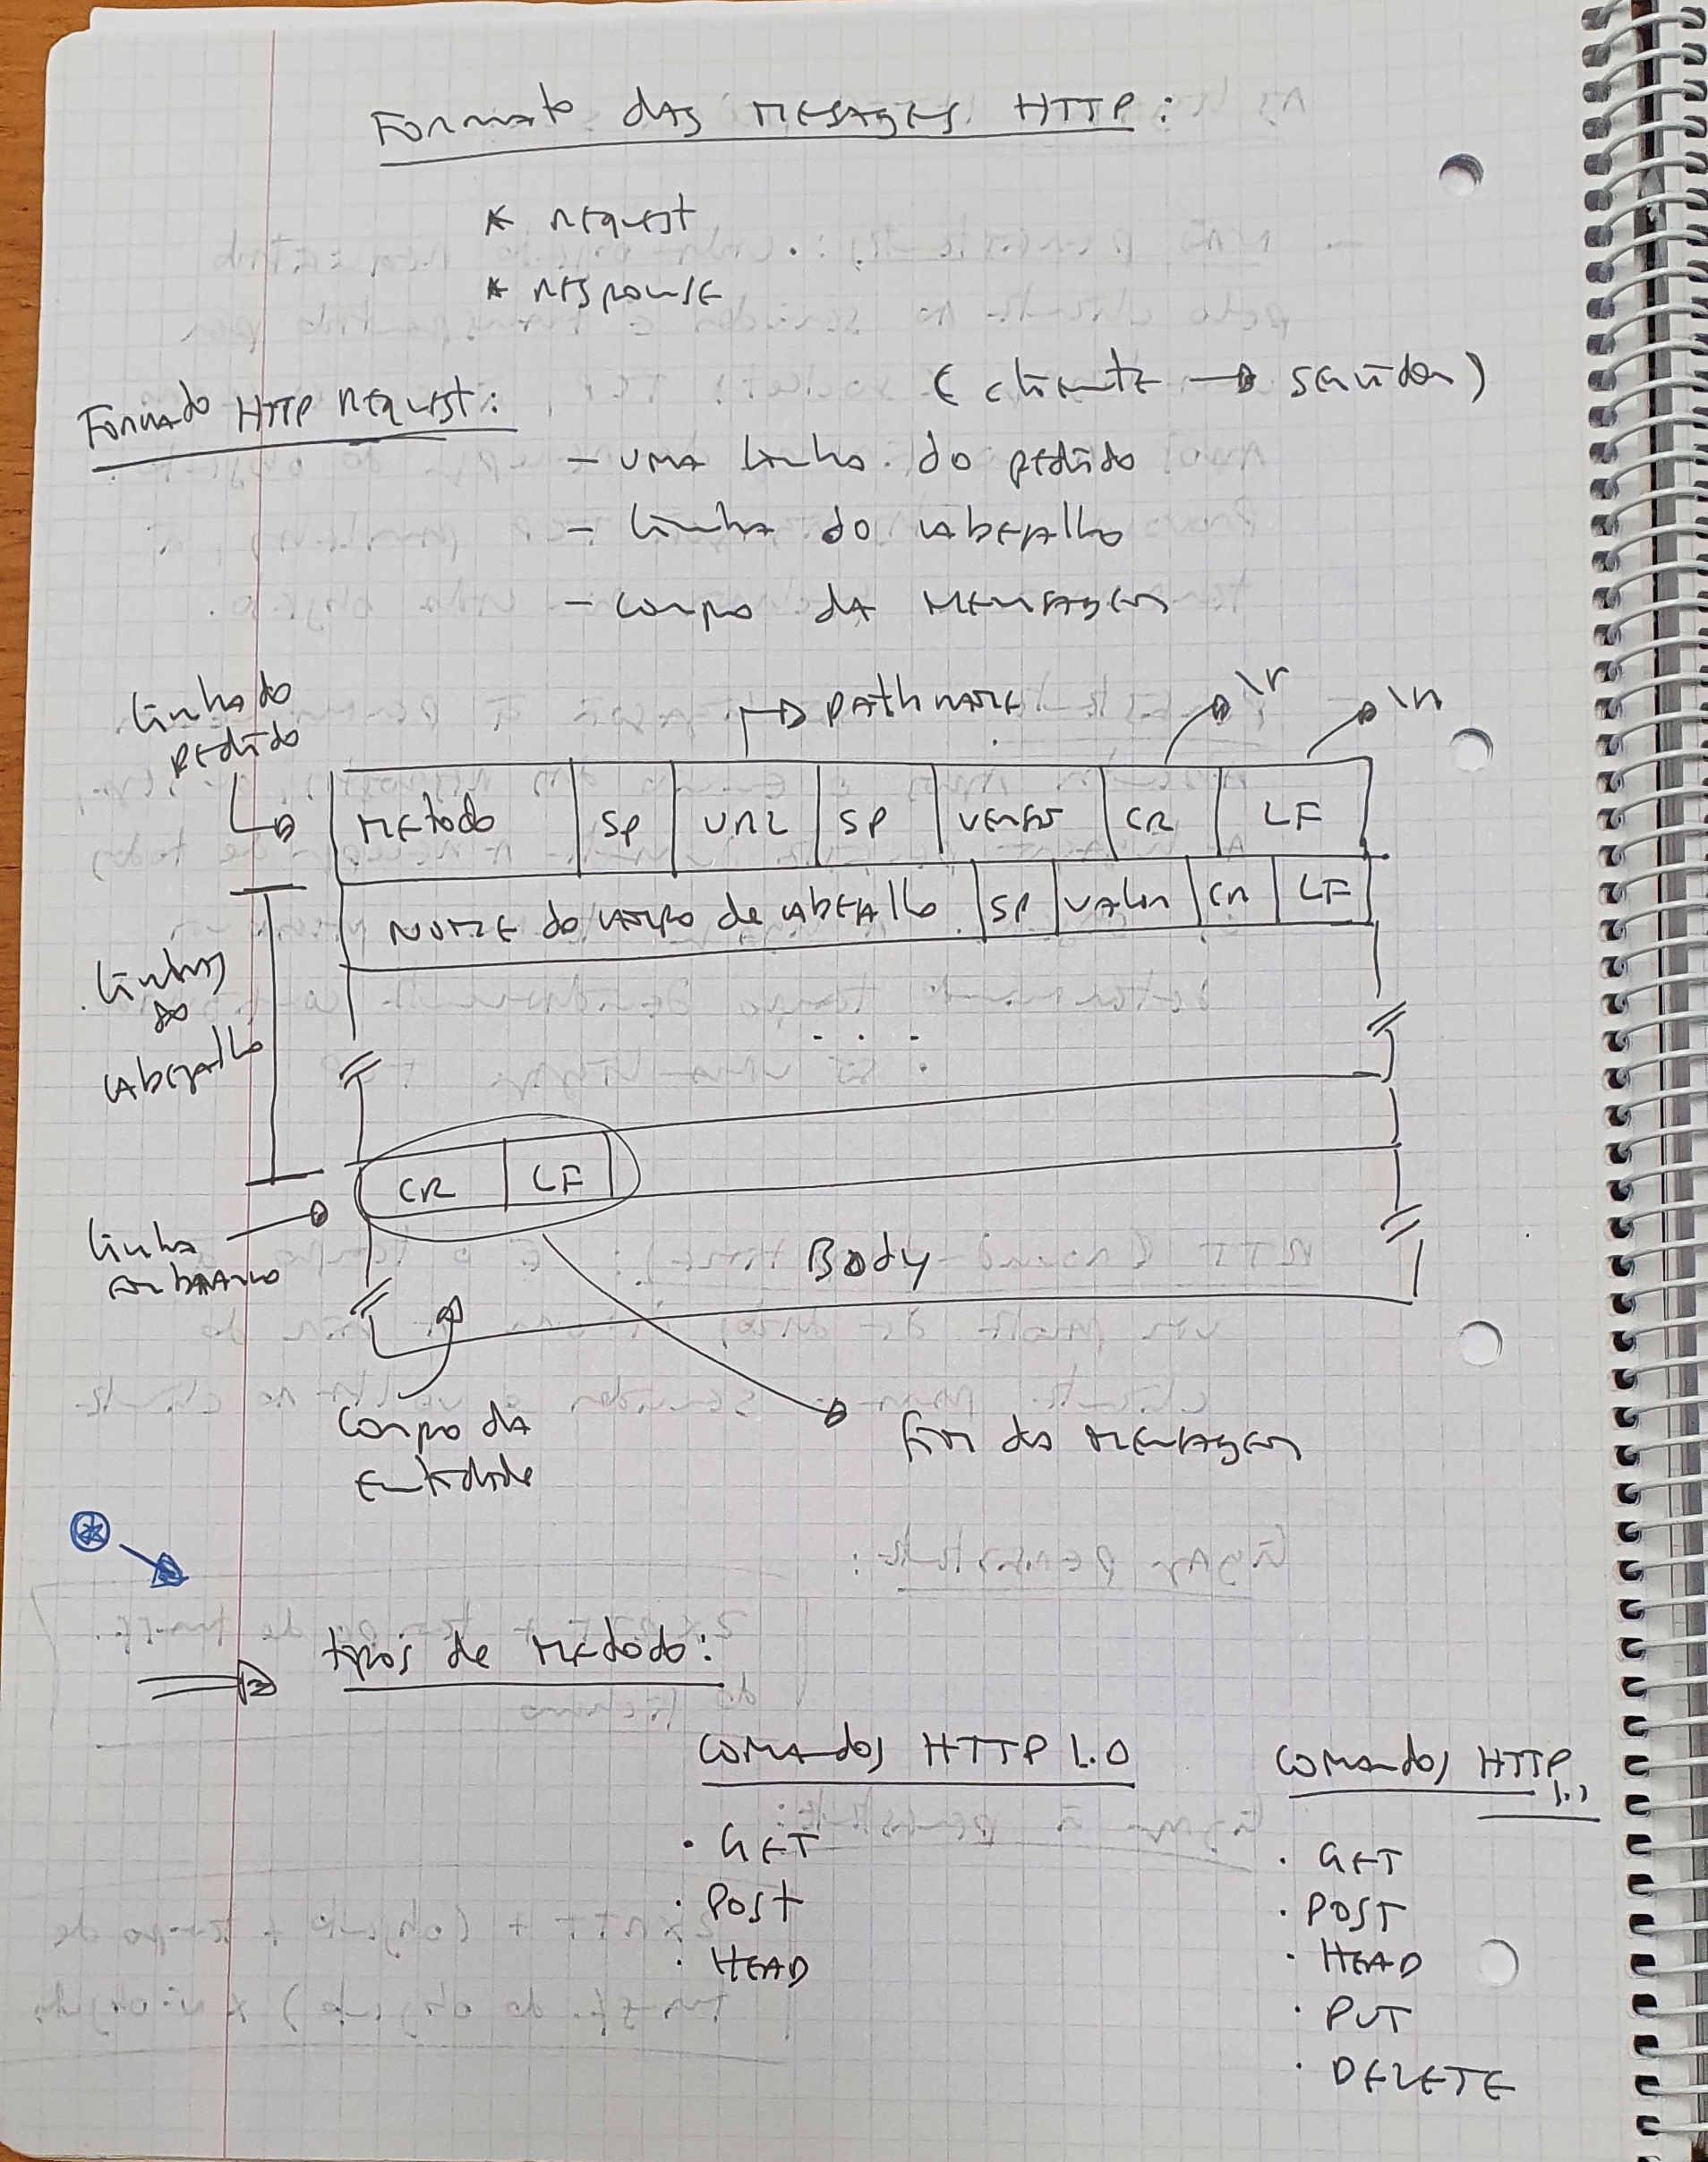 Formato das mesages HTTP:
* request
* response
Formado HTTP request:
(cliente → servidor)
- uma linha do pedido
- linha do cabeçalho
- corpo da mensagem
linha do
pedido
→ pathname
\r
\n
Metodo SP URL SP versão CR LF
Nome do campo de cabeçalho SP valor CR LF
linhas
do
cabeçalho
. . .
CR LF
linha
em branco
Body
Corpo da
entidade
fim da mensagem
tipos de metodo:
Comandos HTTP 1.0
· GET
· POST
· HEAD
Comandos HTTP
1.1
· GET
· POST
· HEAD
· PUT
· DELETE